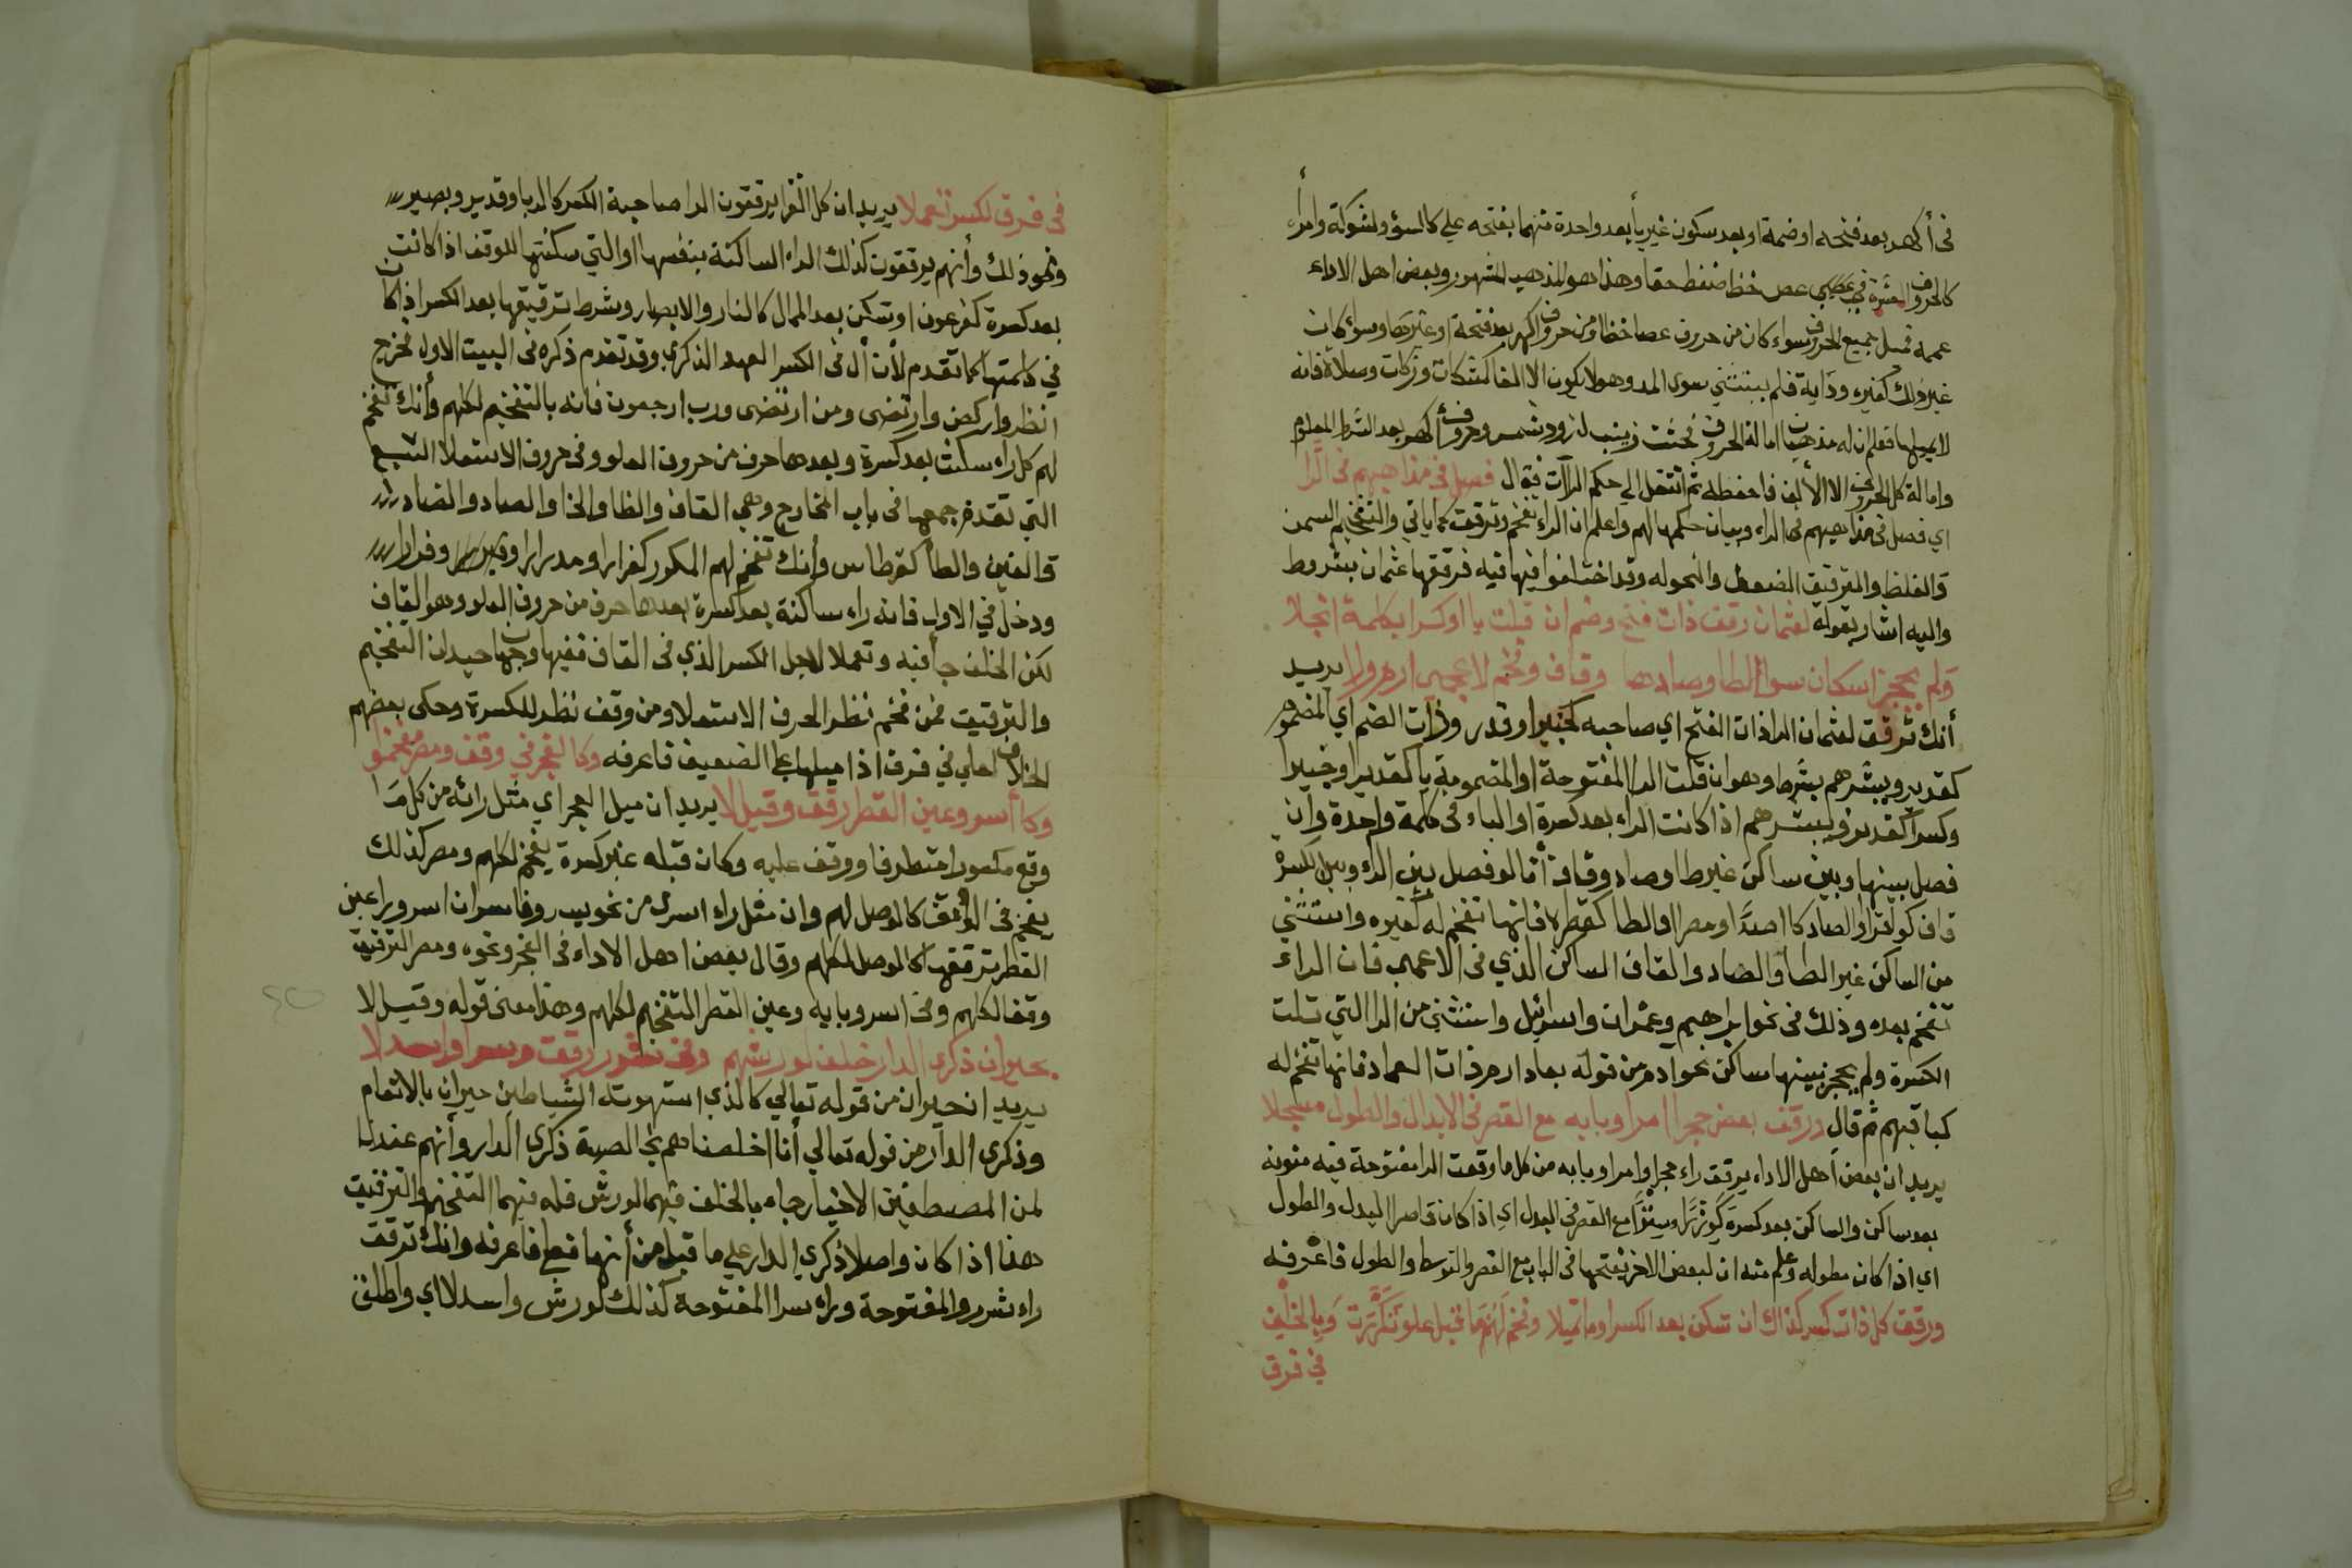 في أكهر بعد فتحه اوضمة او بعد سكون غير يأ بعد واحدة منهما بفتحه علي كالسؤ ولشوكة وامرأ
كالحروف العشرة عص خظا ضغط حقا وهذا هو المذهب المشهور وبعض اهل الاداء
عممه قبل جميع الحروف سواء كان من حروف عصا خظا او من حروف اكهر بعد فتحة او غيرها وسواء كان
غير ذلك كغيره وداية فلم يستثني سوى المد وهو لا يكون الا الفا كمشكات وزكات وصلاة فانه
لا يميلها فعلم ان له مذهبان امالة الحروف وحروف أكهر بعد الشرط المعلوم
وامالة كل الحروف الا الألف فاحفظه ثم انتقل الي حكم الراآت فقال فصل في مذاهبهم في الرا
اي فصل في مذاهبهم في الراء وبيان حكمها لهم واعلم ان الراء تفخم وترقق كما ياتي والتفخيم السمن
والغلظ والترقيق الضعف والنحوله وقد اختلفوا فيها فيه فرققها عثمان بشروط
واليه اشار بقوله لعثمان رقق ذات فتح وضم ان قبلت يا او كسرا بكلمة انجلا
ولم يحجز اسكان سوا الطا وصادها وقاف وفخم لاعجمى ارم ولا يريد
أنك ترقق لعثمان الراذات الفتح اي صاحبه كخبيرا وقدر وذات الضم اي المضموم
كقدير ويبشرهم بشرط وهو ان قلت الرا المفتوحة او المضمومة يا كقديرا وخبيرا
وكسرا كقدير ويبشرهم اذا كانت الراء بعد كسرة او الياء في كلمة واحدة وان
فصل بينها وبين ساكن غير طا وصاد وقاف أما لو فصل بين الراء وبين الكسرة
قاف كوقرا والصاد كااصرا ومصرا او الطا كقطرا فانها تفخم له كغيره واستثني
من الساكن غير الطا والصاد والقاف الساكن الذي في الاعجمي فان الراء
تفخم بعده وذلك في نحو ابراهيم وعمران واسرائيل واستثني من الرا التي تلت
الكسرة ولم يحجز بينها ساكن نحو ادم من قوله بعاد ارم ذات العماد فانها تفخم له
كباقيهم ثم قال ورقق بعض حجرا امرا وبابه مع القصر في الابدال والطول مسجلا
يريد ان بعض أهل الاداء يرقق راء حجرا وامرا وبابه من كل ما وقعت الرا مفتوحة فيه منونه
بعد ساكن والساكن بعد كسرة كوزرا وسترا مع القصر في البدل اي اذا كان قاصرا البدل والطول
اي اذا كان مطوله وعلم منه ان لبعض الاخر يفخمها في الباب مع القصر والتوسط والطول فاعرفه
ورقق كل ذات كسر كذاك ان تسكن بعد الكسر اوما تميلا وفخم لهم ما قبل علو تكررت وبالخلف
في فرق
في فرق لكسر تعملا يريد ان كل القرا يرققون الرا صاحبة الكسر كالربا وقدير وبصير
ونحو ذلك وأنهم يرققون كذلك الراء الساكنة بنفسها او التي سكنتها للوقف اذا كانت
بعد كسرة كفرعون او تسكن بعد الممال كالنار والابصار وشرط ترقيقها بعد الكسر اذا كان
في كلمتها كما تقدم لأن أل في الكسر العهد الذكري وقد تقدم ذكره في البيت الاول فخرج
انظر واركض وارتضى ومن ارتضى ورب ارجعون فانه بالتفخيم لكلهم وأنك تفخم
لهم كل راء سكنت بعد كسرة وبعدها حرف من حروف العلو وفي حروف الاستعلا السبع
التي تقدم جمعها في باب المخارج وهي القاف والظا والخا والصاد والضاد
والغين والطأ كقرطاس وأنك تفخم لهم المكرر كفرارا ومدرارا وفرارا
ودخل في الاول فانه راء ساكنة بعد كسرة بعدها حرف من حروف العلو وهو القاف
لكن الخلف جأ فيه وتعملا لاجل الكسر الذي في القاف ففيها وجها جيدان التفخيم
والترقيق فمن فخم نظر لحرف الاستعلا ومن رقق نظر للكسرة وحكى بعضهم
الخلاف لعلي في فرق اذا ميلها علي الضعيف فاعرفه وكالفجر في وقف ومصر فخمو
وكا أسر وعين القطر رقق وقيل لا يريد ان ميل الفجر اي مثل رائه من كل را
وقع مكسورا متطرفا ووقف عليه وكان قبله غير كسرة يفخم لكلهم ومصر كذلك
يفخم في الوقف كالوصل لهم وان مثل راء اسر من نحو يسر وفاسر ان اسر وبرا عين
القطر ترققها كالوصل لكلهم وقال بعض اهل الاداء في الفجر ونحوه ومصر الترقيق
وقفا لكلهم وفي اسر وبابه وعين القطر التفخيم لكلهم وهذا معنى قوله وقيل لا
بحيران ذكرى الدار خلف لورشهم وفي بشرر رققت وبسرا واسدلا
يريد ان حيران من قوله تعالي كالذي استهوته الشياطين حيران بالانعام
وذكرى الدار من قوله تعالي أنا اخلصناهم بخالصة ذكرى الدار وأنهم عندنا
لمن المصطفين الاخيار جاء بالخلف فيهما لورش فله فيهما التفخيم والترقيق
هذا اذا كان واصلا ذكرى الدار علي ما قبل من أنها قطع فاعرفه وانك ترقق
راء شرر والمفتوحة وراء سرا المفتوحة كذلك لورش واسدلا اي واطلق